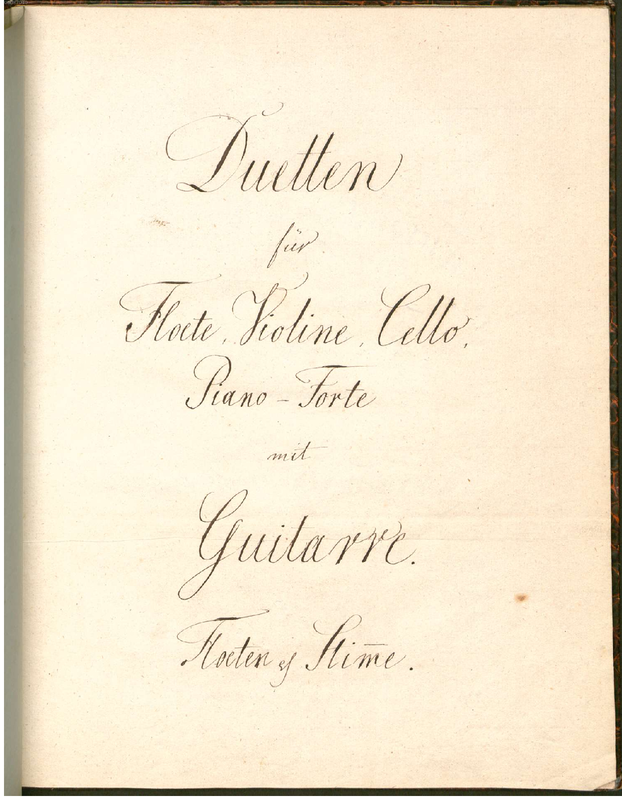 Duetten
für
Floete, Violine, Cello,
Piano-Forte
mit
Guitarre.
Floeten Stim̅e.